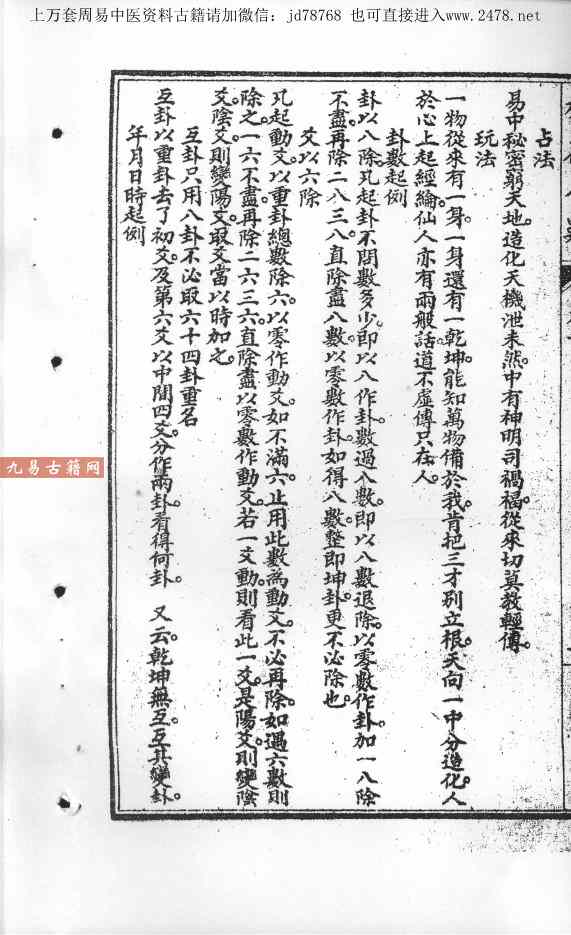 上万套周易中医资料古籍请加微信：jd78768 也可直接进入www.2478.net
占法
易中秘密窮天地。造化天機泄未然。中有神明司禍福。從來切莫教輕傳。
玩法
一物從來有一身。一身還有一乾坤。能知萬物備於我。肯把三才別立根。天向一中分造化。人
於心上起經綸。仙人亦有兩般話。道不虛傳只在人。
卦數起例
卦以八除。凡起卦不問數多少。即以八作卦數。過八數。即以八數退除。以零數作卦。加一八除
不盡。再除二八三八。直除盡八數。以零數作卦。如得八數整。即坤卦。更不必除也。
爻以六除
凡起動爻。以重卦總數除六。以零作動爻。如不滿六。止用此數為動爻。不必再除。如過六數。則
除之。一六不盡。再除二六三六。直除盡。以零數作動爻。若一爻動。則看此一爻。是陽爻。則變陰
爻。陰爻則變陽爻。取爻當以時加之。
互卦只用八卦不必取六十四卦重名
互卦以重卦去了初爻。及第六爻。以中間四爻。分作兩卦。看得何卦。 又云。乾坤無互。互其變卦。
年月日時起例
九易古籍网